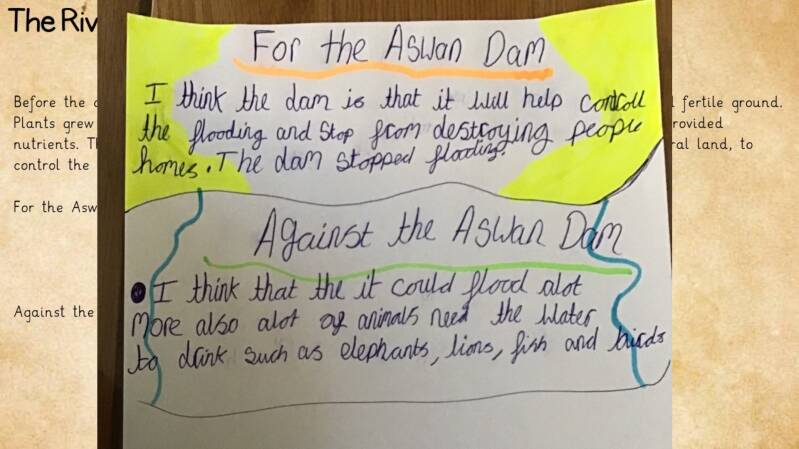 The Riv
Before the
fertile ground.
Plants grew
rovided
nutrients. Th
ral land, to
control the
For the Asw
Against the
For the Aswan Dam
I think the dam is that it will help controll
the flooding and stop from destroying people
homes. The dam stopped flooding.
Against the Aswan Dam
I think that the it could flood alot
more also alot of animals need the water
to drink such as elephants, lions, fish and birds